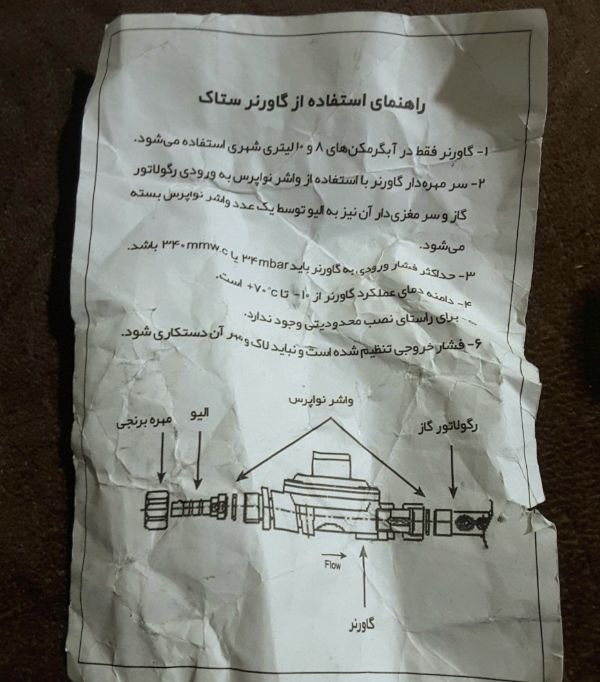 راهنمای استفاده از گاورنر ستاک
۱- گاورنر فقط در آبگرمکن‌های ۸ و ۱۰ لیتری شهری استفاده می‌شود.
۲- سر مهره‌دار گاورنر با استفاده از واشر نواپرس به ورودی رگولاتور
گاز و سر مغزی‌دار آن نیز به الیو توسط یک عدد واشر نواپرس بسته
می‌شود.
۳- حداکثر فشار ورودی به گاورنر باید ۳۴mbar یا ۳۴۰mmw.c باشد.
۴- دامنه دمای عملکرد گاورنر از ۱۰- تا ۷۰°c+ است.
برای راستای نصب محدودیتی وجود ندارد.
۶- فشار خروجی تنظیم شده است و نباید لاک و مهر آن دستکاری شود.
واشر نواپرس
رگولاتور گاز
الیو
مهره برنجی
Flow
گاورنر